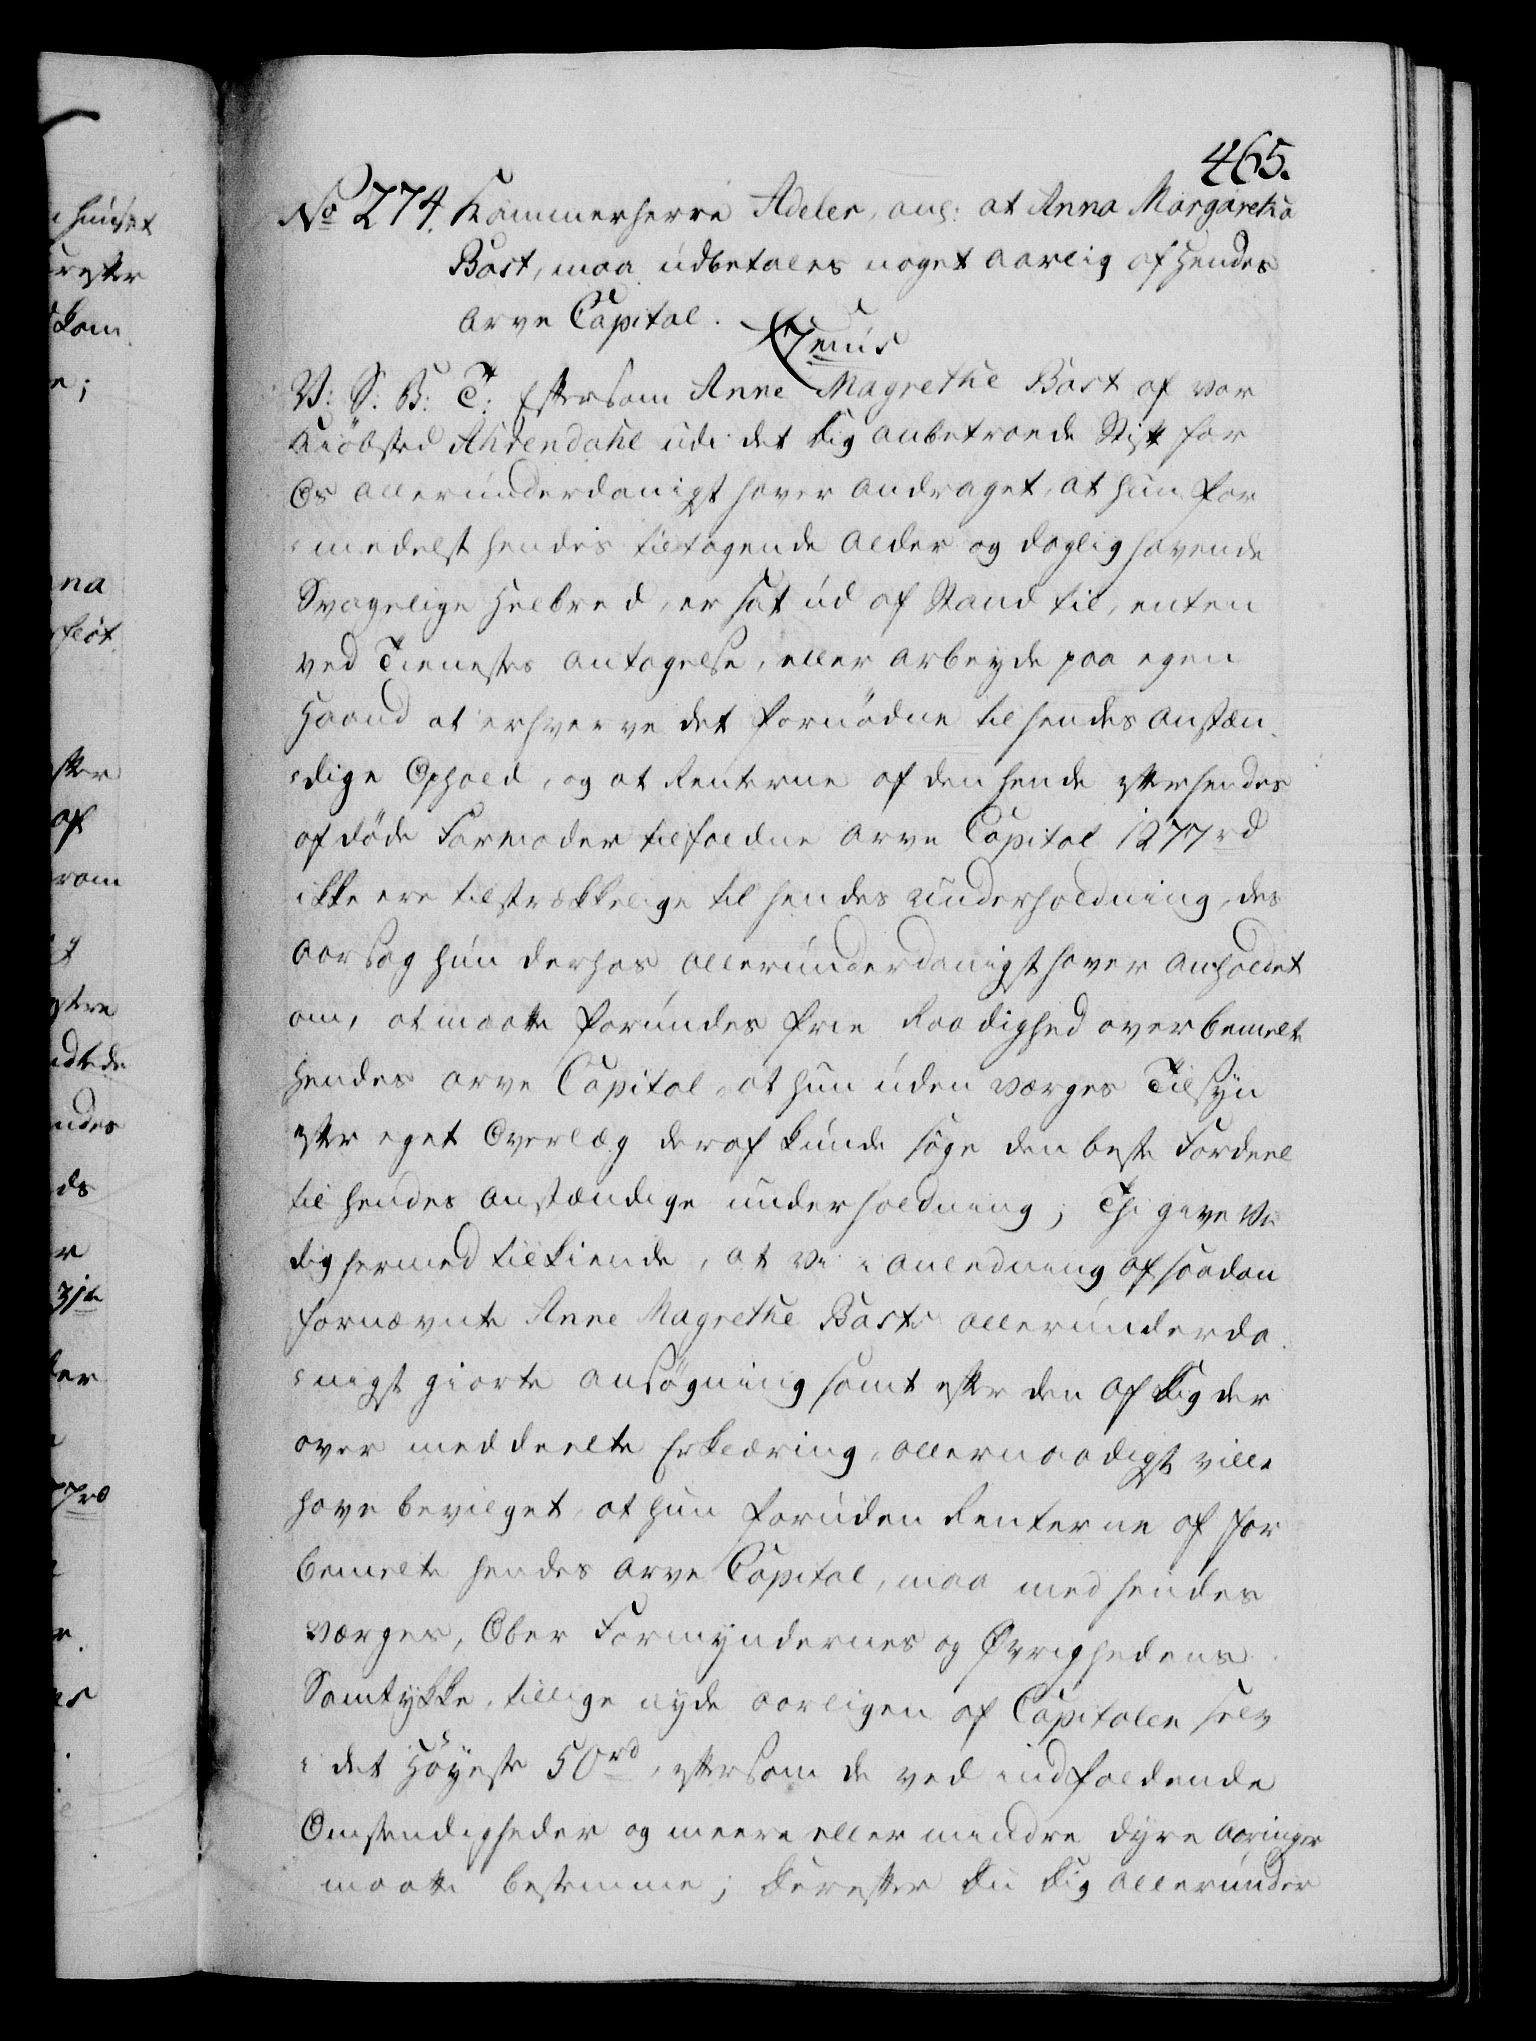 465.
No 274. Kammerherre Adeler, ang: at Anna Margaretha
Bast, maa udbetales noget aarlig af Hendes
Arve Capital.
Genuis
V: S: B: T: Eftersom Anne Magrethe Bast af vor
Kiöbsted Ahrendahl udi det dig anbetroede Stift for
Os allerunderdanigst haver andraget, at hun for
-medelst hendes tiltagende Alder og daglig havende
Svagelige Helbred, er sat ud af Stand til, enten
ved Tienestes Antagelse, eller Arbeyde paa egen
Haand at erhverve det fornödne til hendes Anstæn
-dige Ophold, og at Renterne af den hende efter hendes
afdöde Farmoder tilfaldne Arve Capital 1277 rd
ikke ere tilstrækkelige til hendes Underholdning, des
Aarsag hun derhos allerunderdanigst haver anholdet
om, at maatte forundes frie Raadighed over bemelte
Hendes Arve Capital, at hun uden Værges Tilsyn
efter eget Overlæg deraf kunde söge den beste Fordeel
til hendes Anstændige Underholdning; Thi give Vi
dig hermed tilkiende, at Vi i Anledning af saadan
fornævnte Anne Magrethe Basts allerunderda
-nigst giorte Ansögning samt efter den af Dig der
over meddeelte Erklæring, allernaadigst ville
have bevilget, at hun foruden Renterne af for
bemelte hendes Arve Capital, maa med hendes
Værges, Ober Formyndernes og Øvrighedens
Samtykke, tillige nyde aarligen af Capitalen selv
i det Höyeste 50 rd, eftersom de ved indfaldende
Omstendigheder og meere eller mindre dyre Aaringer
maatte bestemme; Derefter Du Dig allerunder